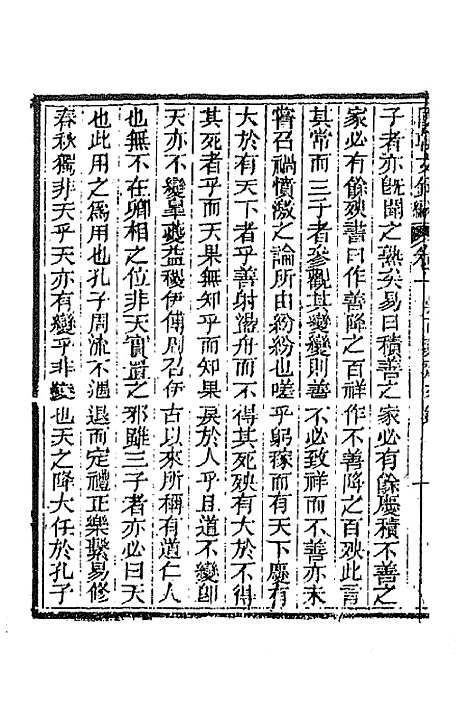 子者亦既聞之熟矣易曰積善之家必有餘慶積不善之
家必有餘殃書曰作善降之百祥作不善降之百殃此言
其常而三子者參觀其變變則善不必致祥而不善亦未
嘗召禍憤激之論所由紛紛也嗟乎躬稼而有天下慶有
大於有天下者乎善射盪舟而不得其死殃有大於不得
其死者乎而天果無知乎而知果戾於人乎且道不變卽
天亦不變皐夔益稷伊傅周召伊古以來所稱有道仁人
也無不在卿相之位非天實遺之邪雖三子者亦必曰天
也此用之爲用也孔子周流不遇退而定禮正樂繫易修
春秋獨非天乎天亦有變乎非變也天之降大任於孔子